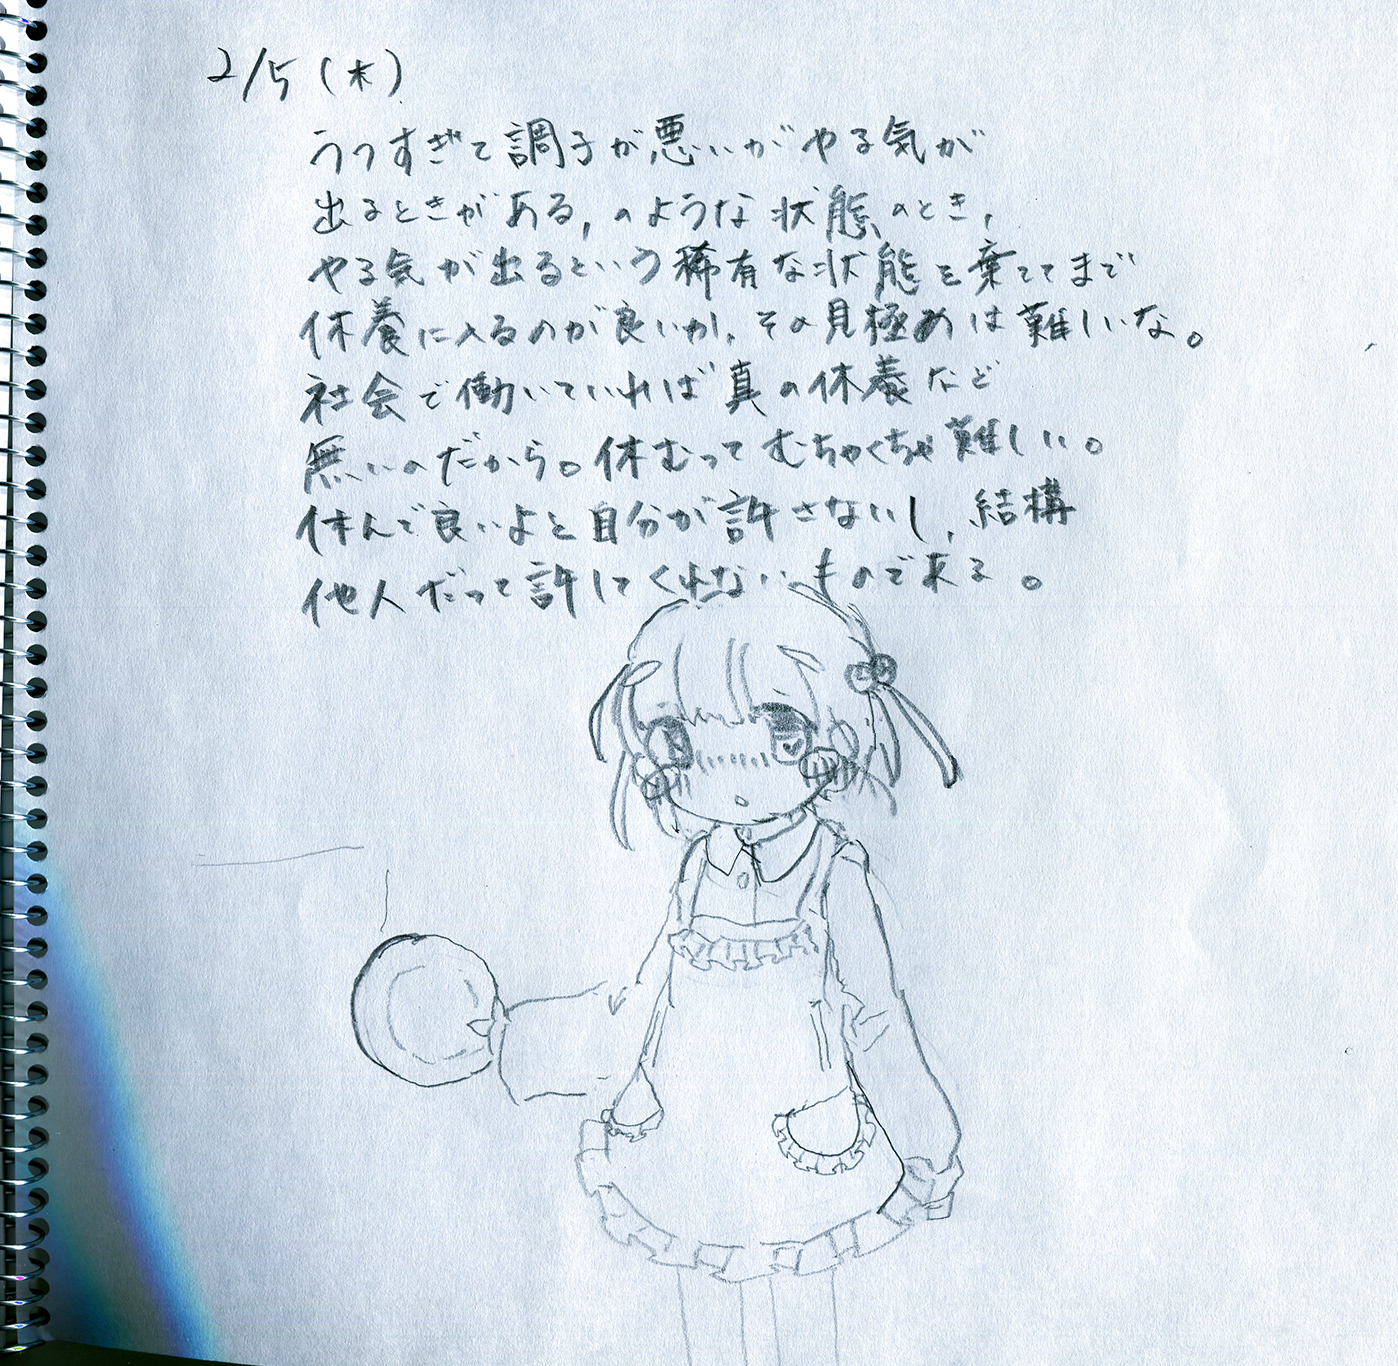 2/5(木)
うつすぎて調子が悪いがやる気が
出るときがある,のような状態のとき,
やる気が出るという稀有な状態を棄ててまで
休養に入るのが良いか,その見極めは難しいな。
社会で働いていれば真の休養など
無いのだから。休むってむちゃくちゃ難しい。
休んで良いよと自分が許さないし,結構
他人だって許してくれないもので来る。